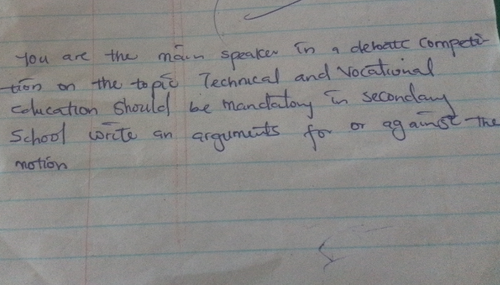 You are the main speaker in a debate competi-
tion on the topic Technical and Vocational
education Should be mandatory in secondary
School write an arguments for or against the
motion